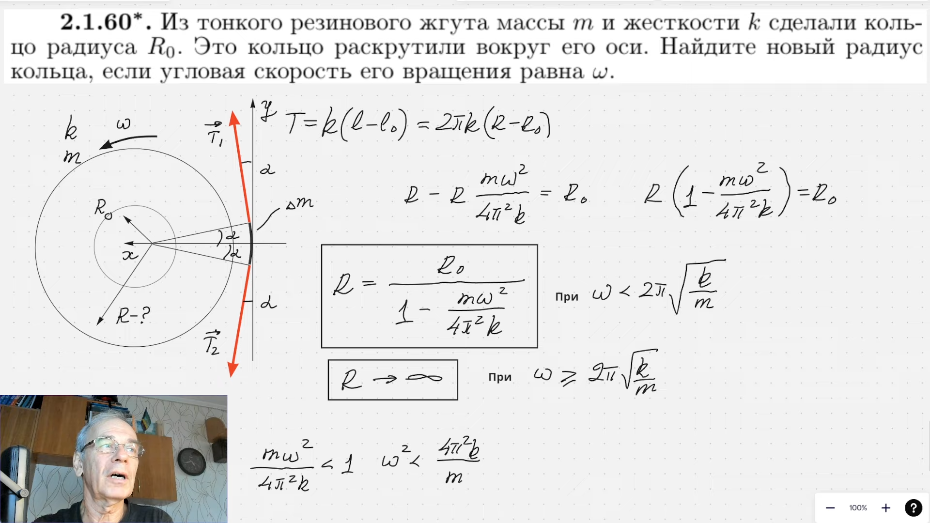 2.1.60*. Из тонкого резинового жгута массы m и жесткости k сделали коль-
цо радиуса R₀. Это кольцо раскрутили вокруг его оси. Найдите новый радиус
кольца, если угловая скорость его вращения равна ω.
k
m
ω
T⃗₁
y
α
Δm
R₀
x
α
α
R-?
α
T⃗₂
T = k(l-l₀) = 2πk(R-R₀)
R - R mω²/4π²k = R₀
R(1 - mω²/4π²k) = R₀
R = R₀/(1 - mω²/4π²k)
При ω < 2π√(k/m)
R → ∞
При ω ⩾ 2π√(k/m)
mω²/4π²k < 1 ω² < 4π²k/m
100%